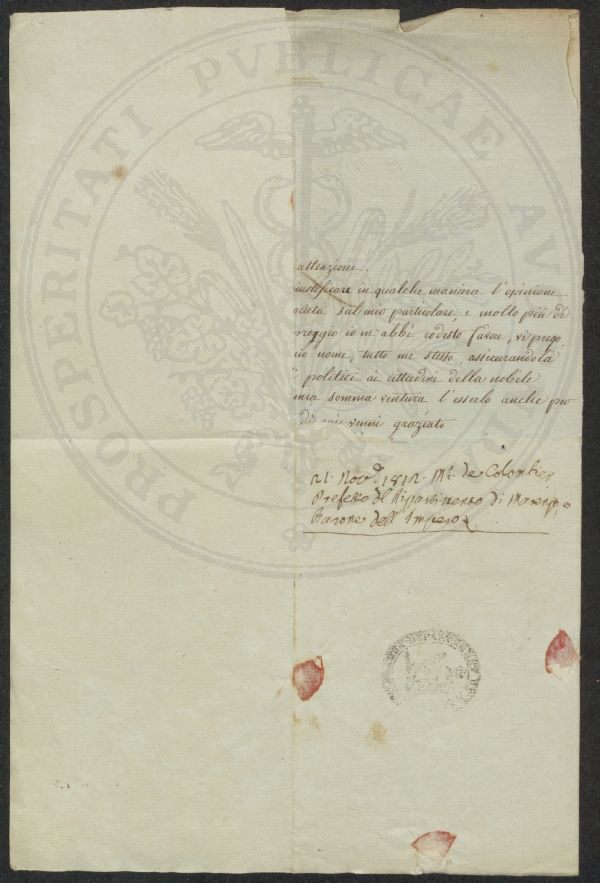 PROSPERITATI PVBLICAE AV DA
attenzione.
iustificare in qualche maniera l'opinione
ocietà sul mio particolare, e molto più di
preggio io m'abbi codesto favore, vi prego,
io nome, tutto me stesso, assicurandola
politici ai cittadini della nobile
mia somma ventura l'esserlo anche per
venni graziato
21. Nov.e 1812. Mr. de Colombier
Prefetto del Dipartimento di Marengo, e
Barone dell'Impero